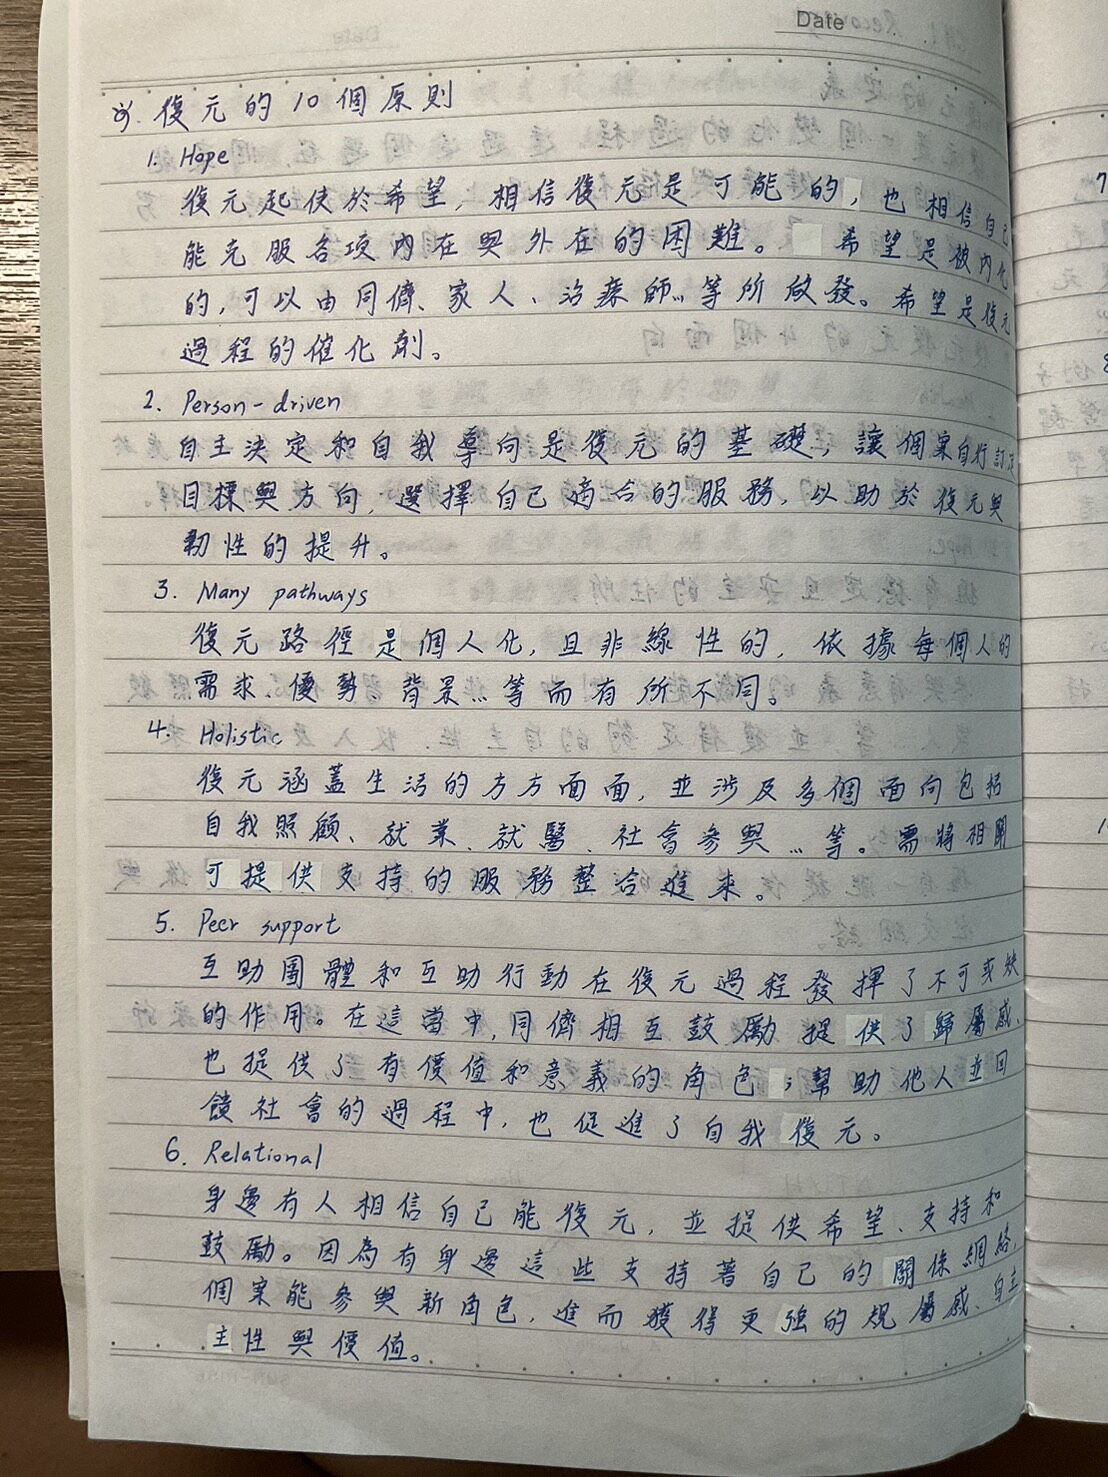 Date
3). 復元的10個原則
1. Hope
復元起使於希望，相信復元是可能的，也相信自己
能克服各項內在與外在的困難。希望是被內化
的，可以由同儕、家人、治療師…等所啟發。希望是復元
過程的催化劑。
2. Person-driven
自主決定和自我導向是復元的基礎，讓個案自行訂定
目標與方向，選擇自己適合的服務，以助於復元與
韌性的提升。
3. Many pathways
復元路徑是個人化，且非線性的，依據每個人的
需求、優勢、背景…等而有所不同。
4. Holistic
復元涵蓋生活的方方面面，並涉及多個面向包括
自我照顧、就業、就醫、社會參與…等。需將相關
可提供支持的服務整合進來。
5. Peer support
互助團體和互助行動在復元過程發揮了不可或缺
的作用。在這當中，同儕相互鼓勵提供了歸屬感，
也提供了有價值和意義的角色；幫助他人並回
饋社會的過程中，也促進了自我復元。
6. Relational
身邊有人相信自己能復元，並提供希望、支持和
鼓勵。因為有身邊這些支持著自己的關係網絡，
個案能參與新角色，進而獲得更強的規屬感、自主
主性與價值。